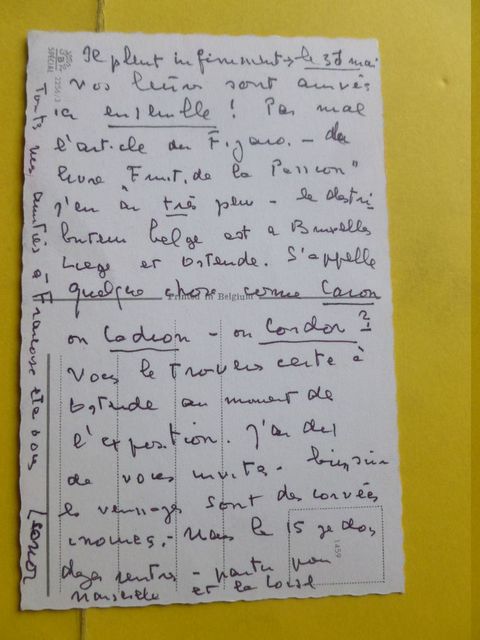 Il pleut infiniment → le 30 mai
vos lettres sont arrivés
ici ensemble ! Pas mal
l'article du Figaro. — du
livre "Fruit de la Passion"
j'en ai très peu — le distri-
buteur belge est à Bruxelles
Liège et Ostende. S'appelle
quelque chose comme Caron
Printed in Belgium
ou Ladron — ou Cordor ?
Vous le trouverez certe à
Ostende au moment de
l'exposition. J'ai dû
de vous invite. bien sûr
les vernissages sont des corvées
énormes. — Mais le 15 je dois
déjà rentrer — partir pour
Marseille et la Corse
Toutes mes amitiés à Françoise et à vous
2256/3
1459